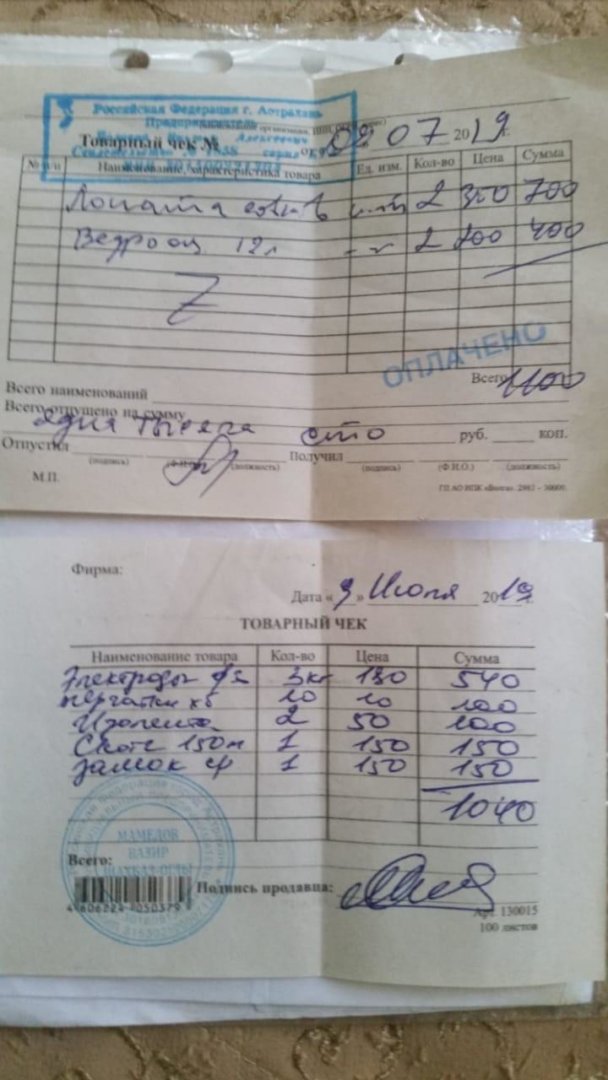 Российская Федерация г. Астрахань
Предприниматель
Товарный чек № от 09 07 2019 г.
№ п/п Наименование, характеристика товара Ед. изм. Кол-во Цена Сумма
Лопата совков шт 2 350 700
Ведро оц 12л -"- 2 200 400
ОПЛАЧЕНО
Всего 1100
Всего наименований
Всего отпущено на сумму
Одна тысяча сто руб. коп.
Отпустил Получил
(подпись) (Ф.И.О.) (должность) (подпись) (Ф.И.О.) (должность)
М.П.
ГП АО ИПК «Волга».
Фирма:
Дата « 9 » Июля 2019г.
ТОВАРНЫЙ ЧЕК
Наименование товара Кол-во Цена Сумма
Электроды ф3 3кг 180 540
перчатки хб 10 10 100
Изолента 2 50 100
Скотч 150м 1 150 150
замок 1 150 150
1040
МАМЕДОВ
ВАЗИР
ШАХБАЗ ОГЛЫ
Всего:
Подпись продавца:
4 606224 050379
Арт. 130015
100 листов